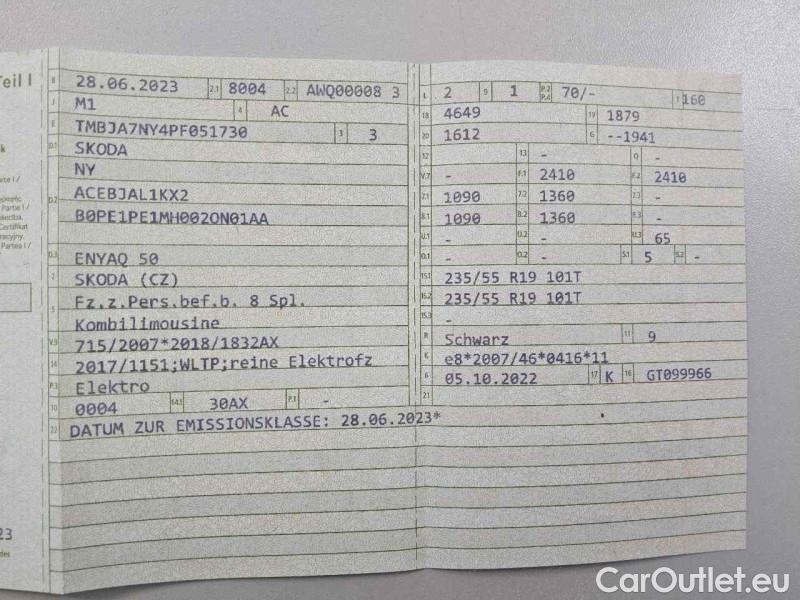 Teil I
B 28.06.2023 2.1 8004 2.2 AWQ00008 3
J M1 4 AC
E TMBJA7NY4PF051730 3 3
D.1 SKODA
NY
D.2 ACEBJAL1KX2
B0PE1PE1MH002ON01AA
D.3 ENYAQ 50
2 SKODA (CZ)
5 Fz.z.Pers.bef.b. 8 Spl.
Kombilimousine
V.9 715/2007*2018/1832AX
14 2017/1151;WLTP;reine Elektrofz
P.3 Elektro
10 0004 14.1 30AX P.1 -
22 DATUM ZUR EMISSIONSKLASSE: 28.06.2023*
L 2 9 1 P.2 P.4 70/- T 160
18 4649 19 1879
20 1612 G --1941
12 - 13 - Q -
V.7 - F.1 2410 F.2 2410
7.1 1090 7.2 1360 7.3 -
8.1 1090 8.2 1360 8.3 -
U.1 - U.2 - U.3 65
O.1 - O.2 - S.1 5 S.2 -
15.1 235/55 R19 101T
15.2 235/55 R19 101T
15.3 -
R Schwarz 11 9
K e8*2007/46*0416*11
6 05.10.2022 17 K 16 GT099966
21
CarOutlet.eu